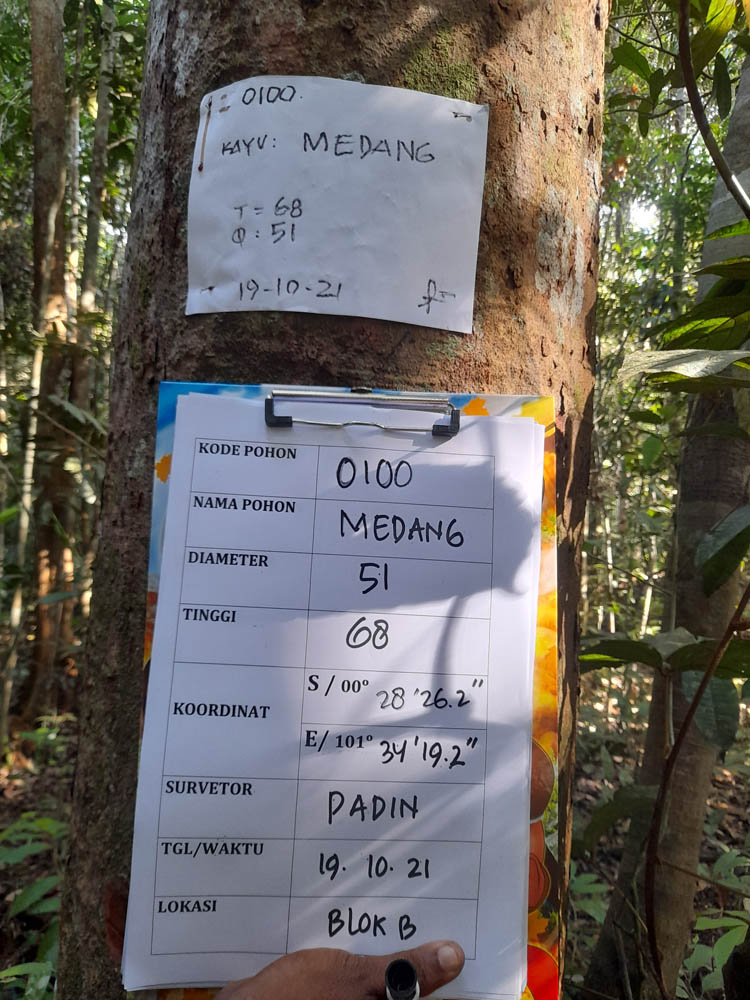 0100.
KAYU: MEDANG
T = 68
Φ : 51
19-10-21
KODE POHON 0100
NAMA POHON MEDANG
DIAMETER 51
TINGGI 68
KOORDINAT
S / 00° 28'26.2"
E/ 101° 34'19.2"
SURVETOR PADIN
TGL/WAKTU 19. 10. 21
LOKASI BLOK B